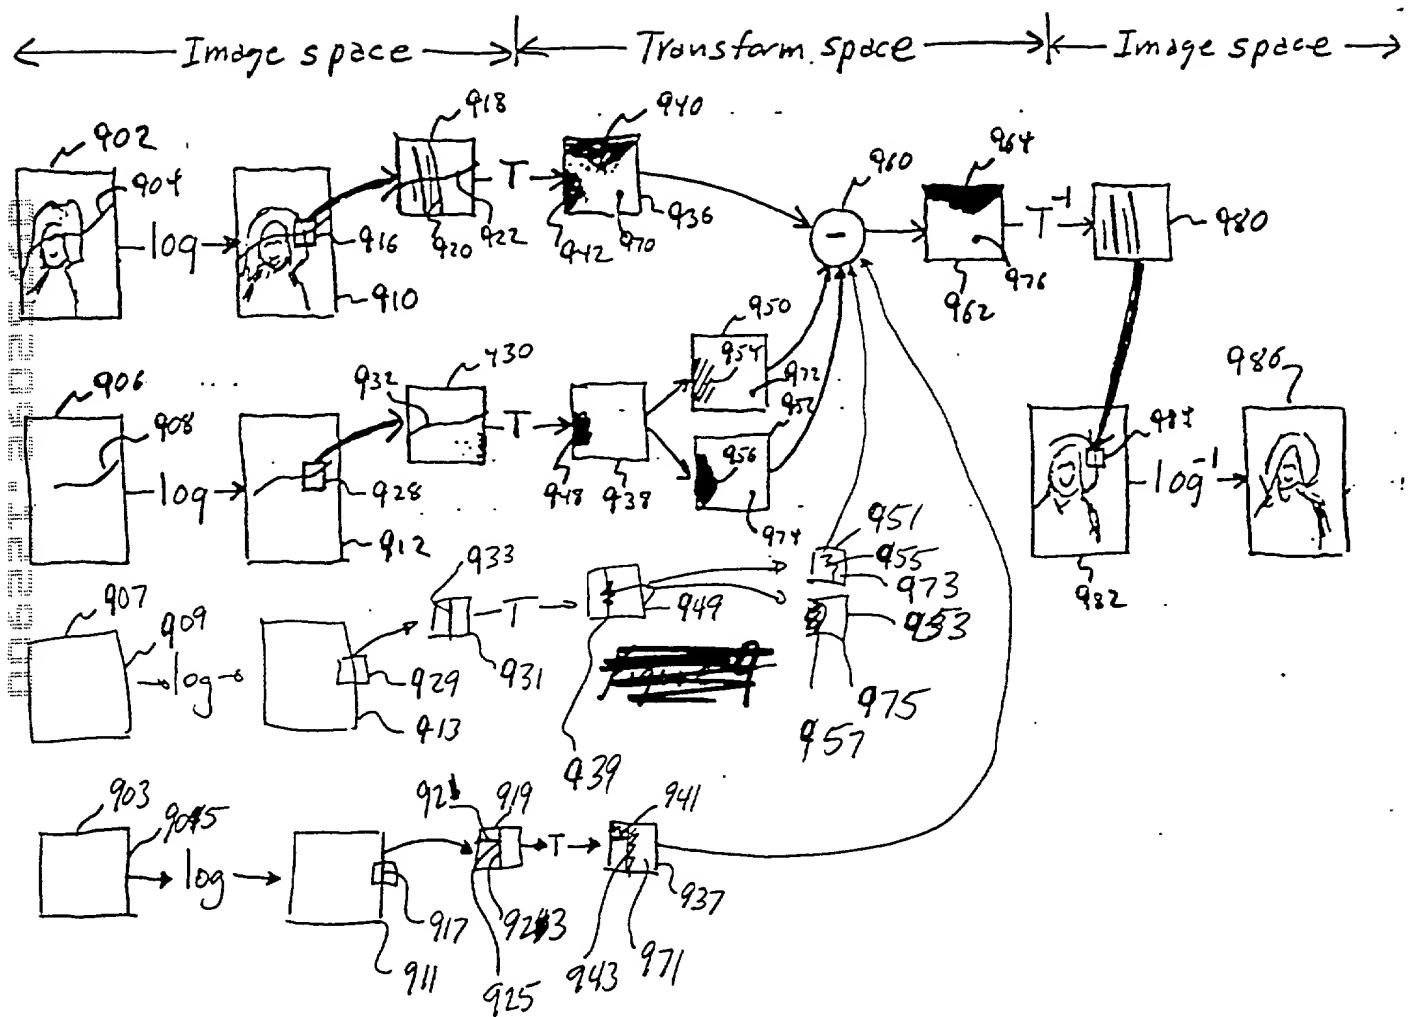 Image space Transform space Image space
902
904
log
916
910
918
920
922
T
940
942
970
936
960
-
964
T⁻¹
976
962
980
906
908
log
928
912
932
T
948
938
950
954
972
952
956
974
984
log⁻¹
982
986
907
909
log
929
913
933
T
931
949
939
951
955
973
953
975
957
903
log
917
911
919
T
925
941
937
943
971